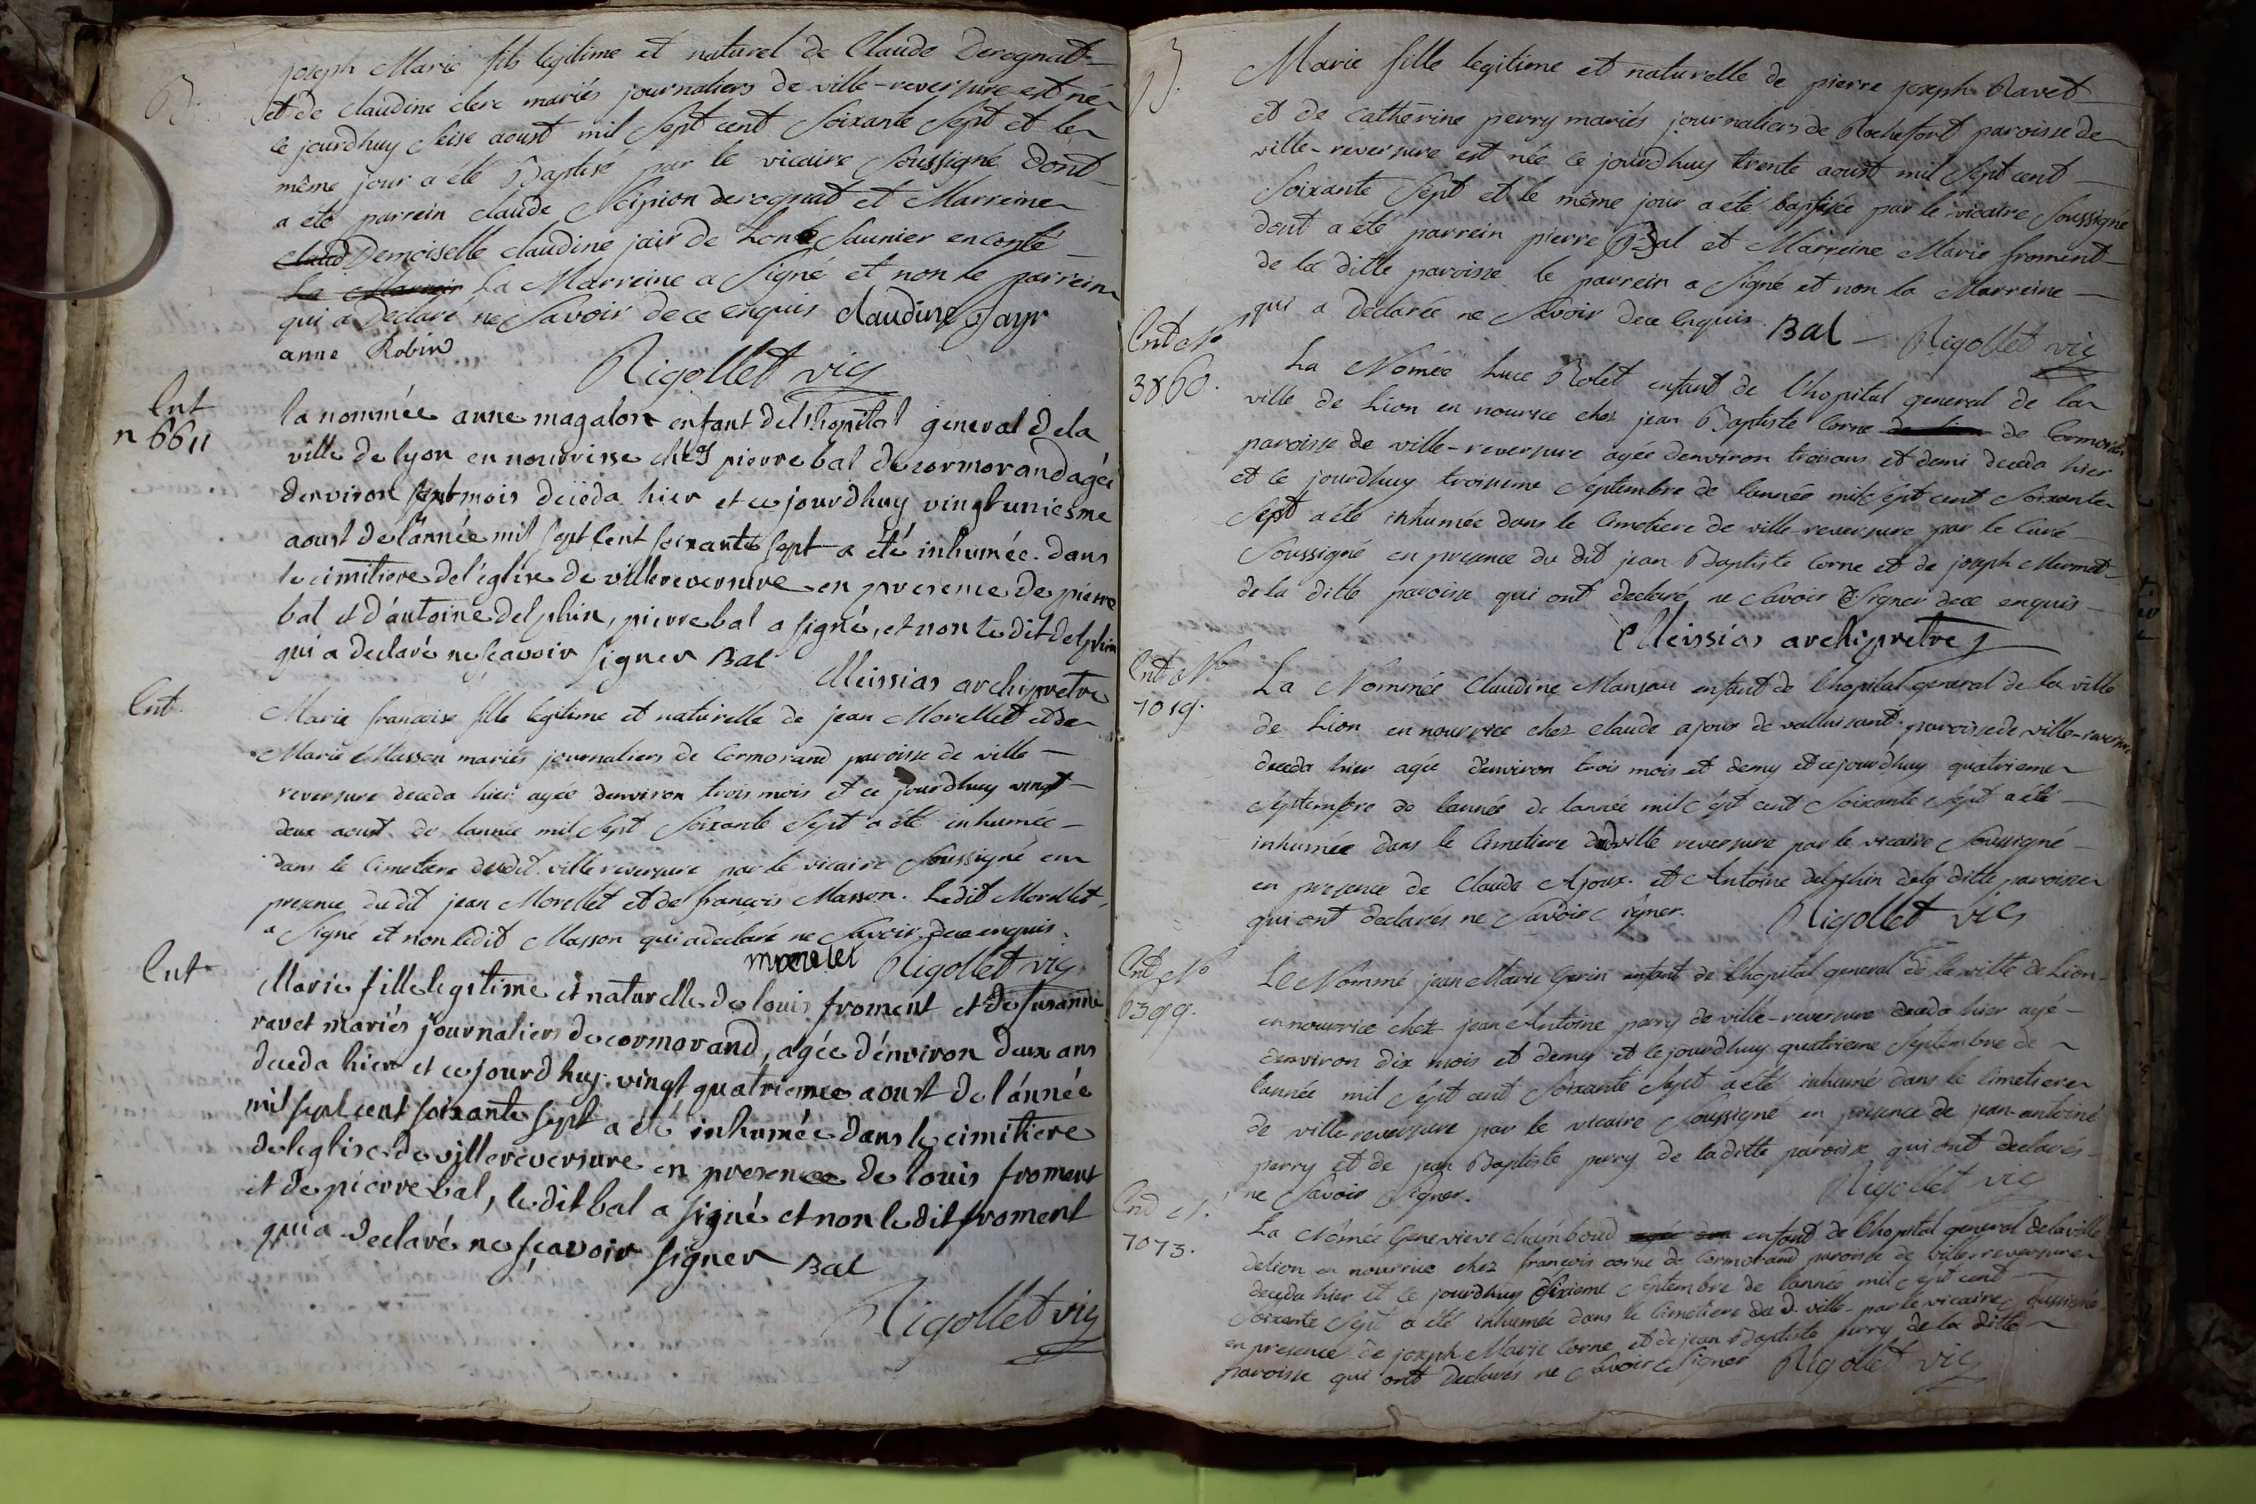 B.
joseph Marie fils legitime et naturel de Claude Derognat
et de claudine clerc mariés journaliers de ville-reversure est né
ce jourdhuy seise aoust mil sept cent soixante sept et le
même jour a été Baptisé par le vicaire soussigné dont
a été parrein claude Scipion derognat et Marreine
claud Demoiselle claudine jair de Saunier en conté
La Marrein La Marreine a signé et non le parrein
qui a declaré ne savoir de ce enquis claudine jayr
anne Robin
Rigollet vic
Ent
n 6611
la nommée anne magalon enfant del'hopital general de la
ville de lyon en nourrisse chés pierre bal de cormorand agée
denviron sept mois deceda hier et ce jourdhuy vingt uniesme
aoust de l'année mil sept cent soixante sept a été inhumée dans
le cimitiere de l'eglise de villereversure en presence de pierre
bal et d'antoine delphin, pierre bal a signé, et non le dit delphin
qui a declaré ne scavoir signer Bal
Meissias archiprètre
Ent
Marie françoise fille legitime et naturelle de jean Morellet et de
Marie Masson mariés journaliers de Cormorand paroisse de ville
reversure deceda hier agée denviron trois mois et ce jourdhuy vingt
deux aoust de lannée mil sept soixante sept a été inhumée
dans le Cimetiere dudit villereversure par le vicaire soussigné en
presence du dit jean Morellet et de françois Masson. Ledit Morellet
a signé et non ledit Masson qui a declaré ne savoir de ce enquis.
morelet Rigollet vic
Ent
Marie fille legitime et naturelle de louis froment et de susanne
ravet mariés journaliers de cormorand, agée d'environ deux ans
deceda hier et ce jourd'huy vingt quatrieme aoust de l'année
mil sept cent soixante sept a été inhumée dans le cimitiere
de l'eglise de villereversure en presence de louis froment
et de pierre bal, le dit bal a signé et non le dit froment
qui a declaré ne sçavoir signer Bal
Rigollet vic
B.
Marie fille legitime et naturelle de pierre joseph Ravet
et de catherine perry mariés journaliers de Rochefort paroisse de
ville-reversure est née ce jourdhuy trente aoust mil sept cent
soixante sept et le même jour a été baptisée par le vicaire soussigné
dont a été parrein pierre Bal et Marreine Marie froment
de la ditte paroisse le parrein a signé et non la Marreine
qui a declarée ne savoir dece enquis Bal Rigollet vic
Ent N°
3860.
La Nomée Luce Rolet enfant de l'hopital general de la
ville de Lion en nourice chez jean Baptiste Corne de Cormorand
paroisse de ville-reversure agée denviron troisans et demi deceda hier
et ce jourdhuy troisieme septembre de lannée mil sept cent soixante
sept a été inhumée dans le Cimetiere de ville-reversure par le Curé
soussigné en presence du dit jean Baptiste Corne et de joseph Mermet
de la ditte paroisse qui ont declaré ne savoir signer dece enquis
Meissias archiprètre
Ent N°
7019.
La Nommée Claudine Manseau enfant de lhopital general de la ville
de Lion en nourrice chez claude ajoux de valluisant paroisse de ville-reversure
deceda hier agée denviron trois mois et demy et cejourdhuy quatrieme
septembre de lannée de lannée mil sept cent soixante sept a été
inhumée dans le Cimetiere de ville reversure par le vicaire soussigné
en presence de Claude Ajoux et Antoine delphin dela ditte paroisse
qui ont declarés ne savoir signer. Rigollet vic
Ent N°
6399.
Le Nommé jean Marie Gerin enfant de lhopital general de la ville de Lion
en nourrice chez jean Antoine perry de ville-reversure deceda hier agé
denviron dix mois et demy et le jourdhuy quatrieme septembre de
lannée mil sept cent soixante sept a été inhumé dans le Cimetiere
de ville reversure par le vicaire soussigné en presence de jean antoine
perry et de jean Baptiste perry de la ditte paroisse qui ont declarés
ne savoir signer. Rigollet vic
Ent N.
7073.
La Nômée Genevieve Chamboud enfant de lhopital general de la ville
de lion en nourrice chez françois corne de Cormorand paroisse de ville-reversure
deceda hier et ce jourdhuy sixieme septembre de lannée mil sept cent
soixante sept a été inhumée dans le Cimetiere du d. ville par le vicaire soussigné
en presence de joseph Marie Corne et de jean Baptiste perry de la ditte
paroisse qui ont declarés ne savoir signer Rigollet vic